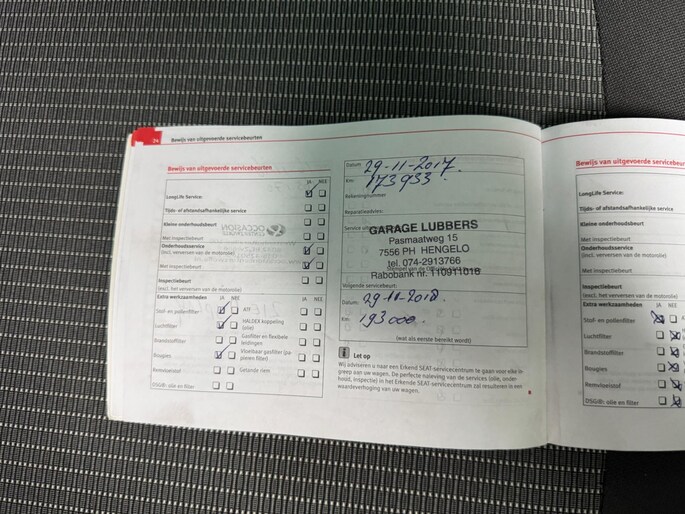 24
Bewijs van uitgevoerde servicebeurten
Bewijs van uitgevoerde servicebeurten
JA NEE
LongLife Service:
Tijds- of afstandsafhankelijke service
Kleine onderhoudsbeurt
Met inspectiebeurt
Onderhoudsservice
(incl. verversen van de motorolie)
Met inspectiebeurt
Inspectiebeurt
(excl. het verversen van de motorolie)
Extra werkzaamheden JA NEE
JA NEE
Stof- en pollenfilter
ATF
Luchtfilter
HALDEX koppeling
(olie)
Brandstoffilter
Gasfilter en flexibele
leidingen
Bougies
Vloeibaar gasfilter (pa-
pieren filter)
Remvloeistof
Getande riem
DSG®: olie en filter
OCCASION
Datum: 29-11-2017.
Km: 173933.
Rekeningnummer
Reparatieadvies:
Service uit
GARAGE LUBBERS
Pasmaatweg 15
7556 PH HENGELO
tel. 074-2913766
Rabobank nr. 110911016
Stempel van de
Volgende servicebeurt:
Datum: 29-11-2018.
Km: 193000.
(wat als eerste bereikt wordt)
Let op
Wij adviseren u naar een Erkend SEAT-servicecentrum te gaan voor elke in-
greep aan uw wagen. De perfecte naleving van de services (olie, onder-
houd, inspectie) in het Erkende SEAT-servicecentrum zal resulteren in een
waardeverhoging van uw wagen.
Bewijs van uitgevoerde servicebeur
LongLife Service:
Tijds- of afstandsafhankelijke service
Kleine onderhoudsbeurt
Met inspectiebeurt
Onderhoudsservice
(incl. verversen van de motorolie)
Met inspectiebeurt
Inspectiebeurt
(excl. het verversen van de motorolie)
Extra werkzaamheden JA NEE
Stof- en pollenfilter
Luchtfilter
Brandstoffilter
Bougies
Remvloeistof
DSG®: olie en filter